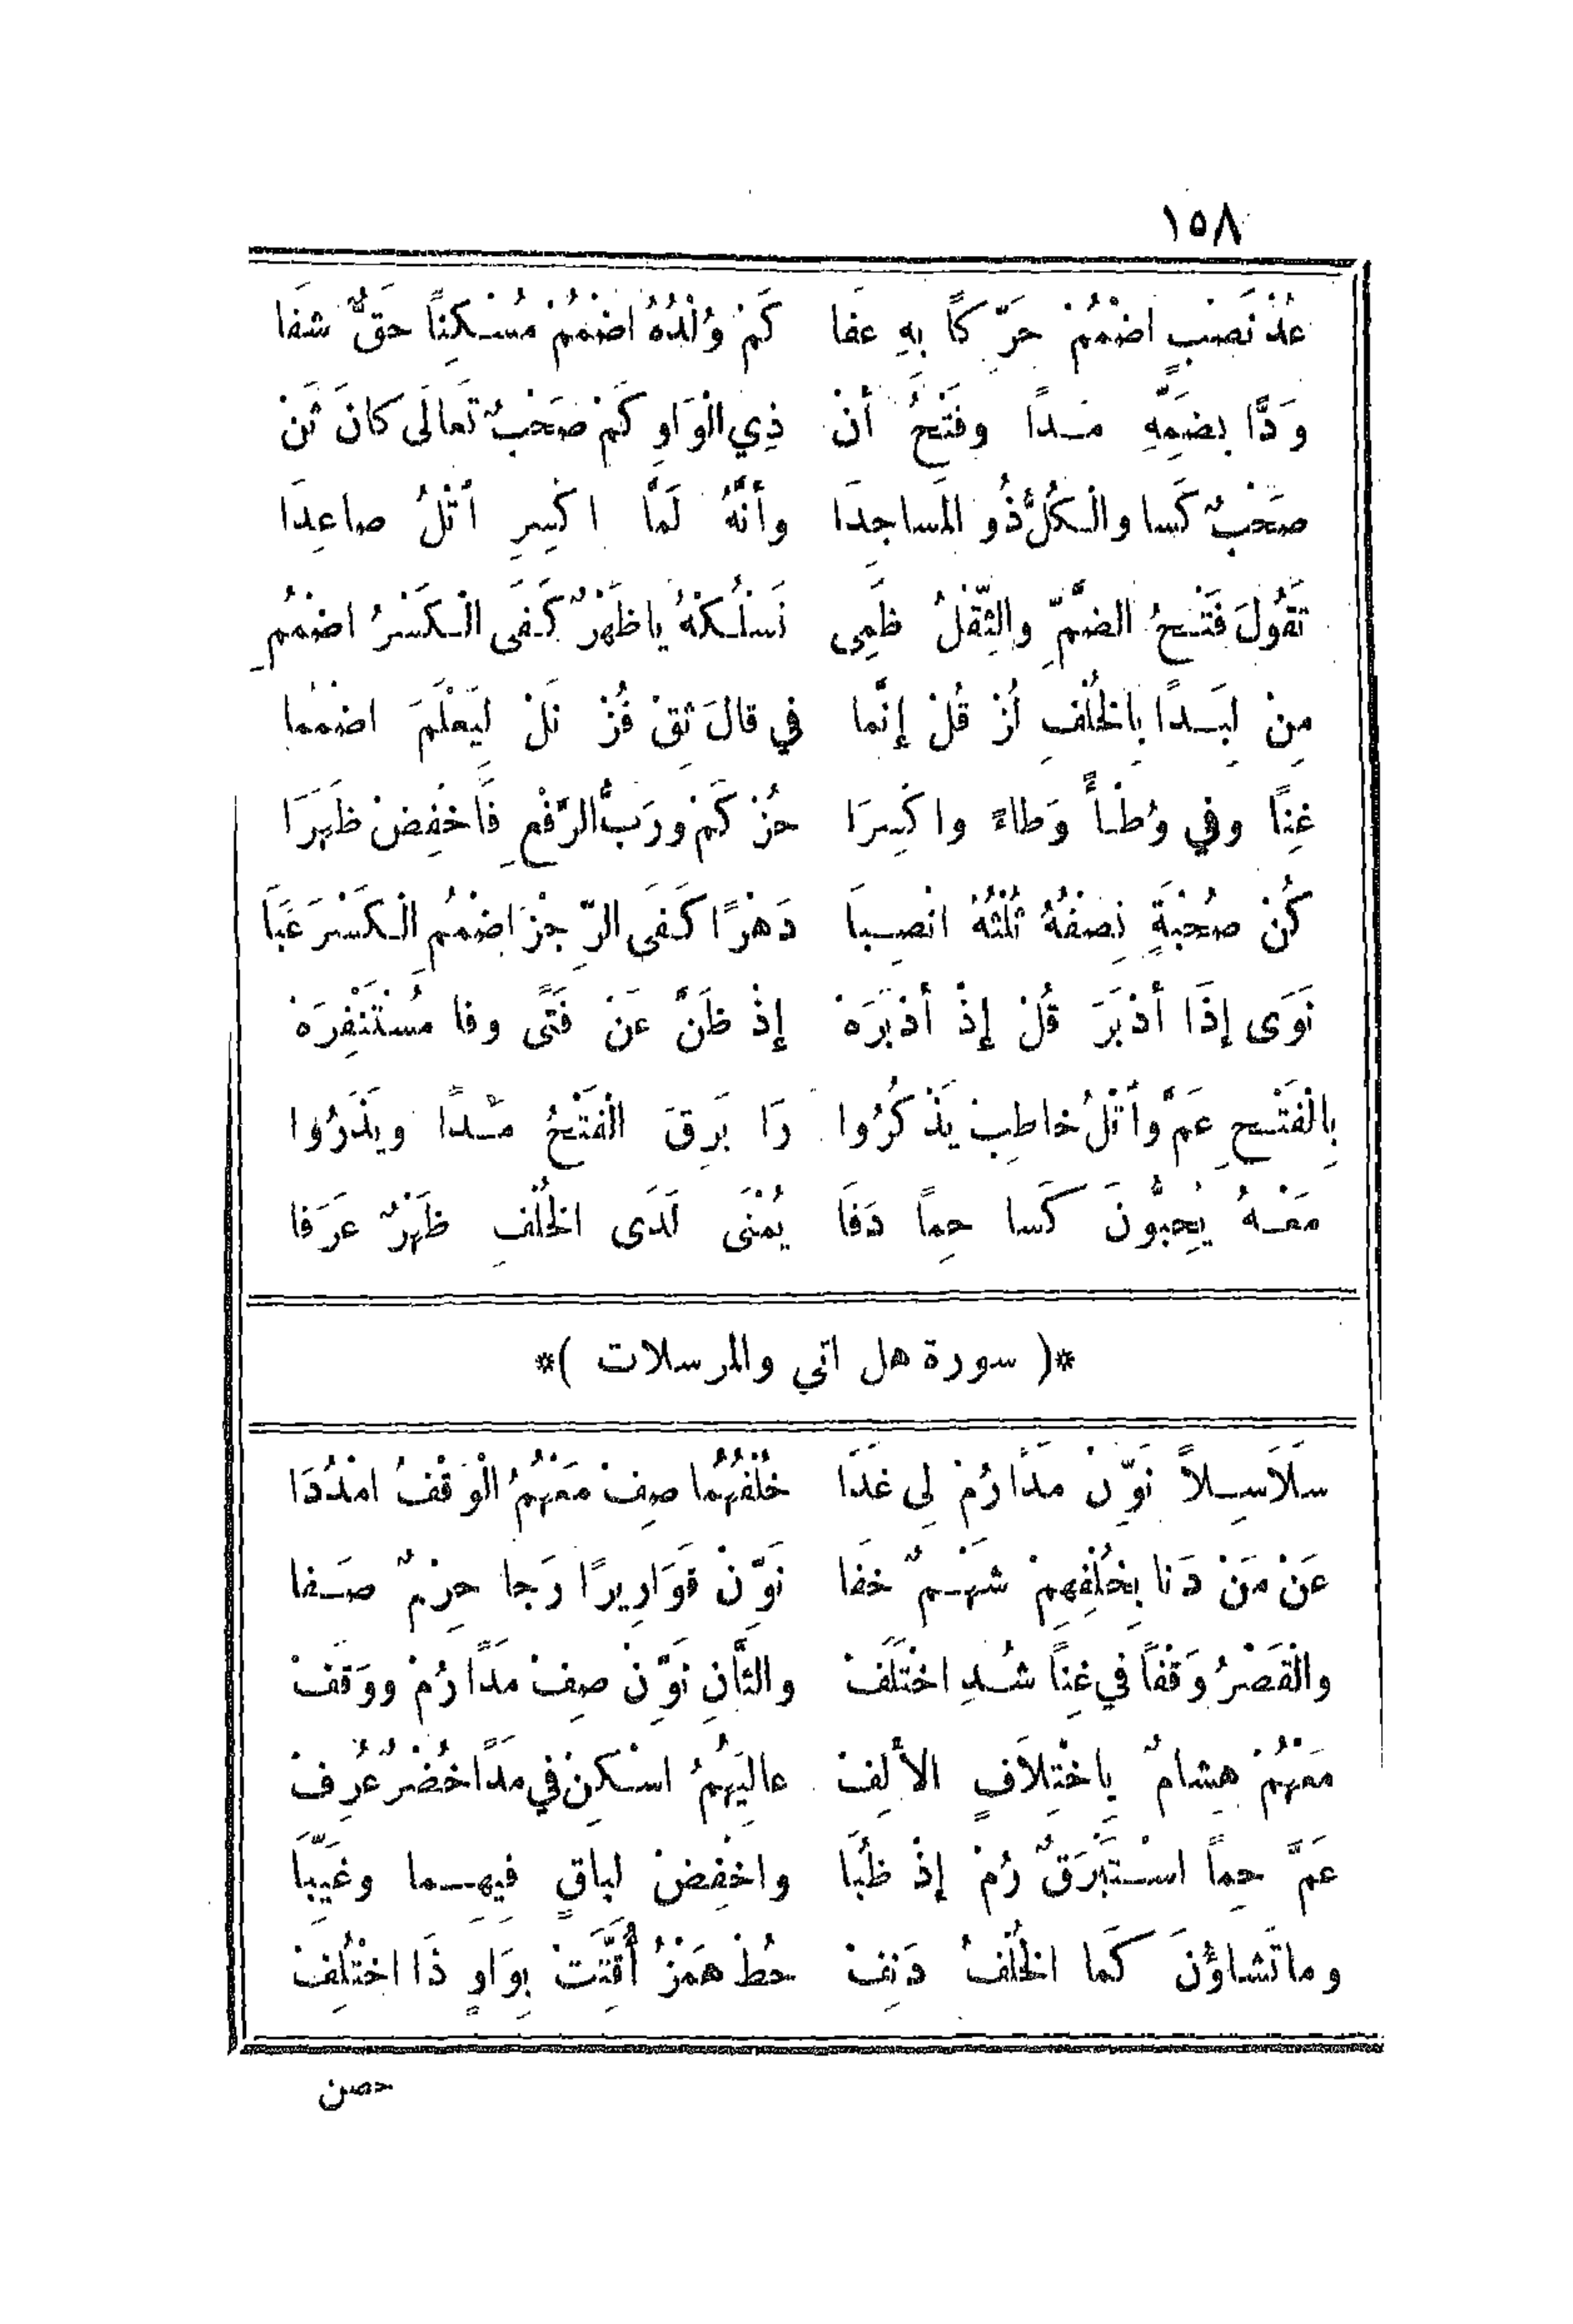 ١٥٨
عُدْ نَصْبٍ اضْمُمْ حَرِّكًا بِهِ عَفَا كَمْ وُلْدُهُ اضْمُمْ مُسْكِنًا حَقٌّ شَفَا
وَدًّا بِضَمِّهِ مَدًا وفَتْحُ أنْ ذِي الْوَاوِ كَمْ صَحْبٌ تَعَالَى كانَ ثَنْ
صَحْبٌ كَسا والْكُلُّ ذُو المَساجِدَا وأنَّهُ لَمَّا اكْسِرِ أتْلُ صاعِدَا
تَقُولَ فَتْحُ الضَّمِّ والثِّقْلُ ظَمِى نَسْلُكْهُ يا ظَهْرٌ كَفَى الْكَسْرُ اضْمُمِ
مِنْ لِبَدًا بِالْخُلْفِ لُزْ قُلْ إنَّما في قالَ ثِقْ فُزْ نَلْ لِيَعْلَمَ اضْمُما
غِنًا وفي وُطْأً وَطاءً واكْسِرَا حُزْ كَمْ ورَبُّ الرَّفْعِ فَاخْفِضْ ظَهَرَا
كُنْ صُحْبَةٍ نِصْفُهُ ثُلْثُهُ انْصِبَا دَهْرًا كَفَى الرِّجْزَ اضْمُمِ الْكَسْرَ عَبَا
نَوَى إذَا أدْبَرَ قُلْ إذْ أدْبَرَهْ إذْ ظَنَّ عَنْ فَتًى وفا مُسْتَنْفِرَهْ
بِالْفَتْحِ عَمَّ وَاتْلُ خاطِبْ يَذْكُرُوا رَا بَرِقَ الْفَتْحُ مَدًا ويَذَرُوا
مَعْهُ يُحِبُّونَ كَسا حِمًا دَفَا يُمْنَى لَدَى الْخُلْفِ ظَهْرٌ عَرَفا
*( سورة هل اتى والمرسلات )*
سَلَاسِلاً نَوِّنْ مَدًا رُمْ لِى غَدَا خُلْفُهُما صِفْ مَعْهُمُ الْوَقْفُ امْدُدَا
عَنْ مَنْ دَنا بِخُلْفِهِمْ شَهْمٌ خَفَا نَوِّنْ قَوَارِيرًا رَجا حِرْمٌ صَفا
والْقَصْرُ وَقْفًا في غِنًا شُدِ اخْتَلَفْ والثَّانِ نَوِّنْ صِفْ مَدًا رُمْ ووَقَفْ
مَعْهُمْ هِشامٌ بِاخْتِلَافٍ الألِفْ عالِيَهُمُ اسْكِنْ في مَدًا خُضْرٌ عُرِفْ
عَمَّ حِمًا اسْتَبْرَقٌ دُمْ إذْ ظُبَا واخْفِضْ لباقٍ فِيهِما وغَيِّبَا
وما تَشاؤُنَ كَما الْخُلْفُ دَنِفْ حُطْ هَمْزُ أُقِّتَتْ بِوَاوٍ ذَا اخْتُلِفْ
حصن